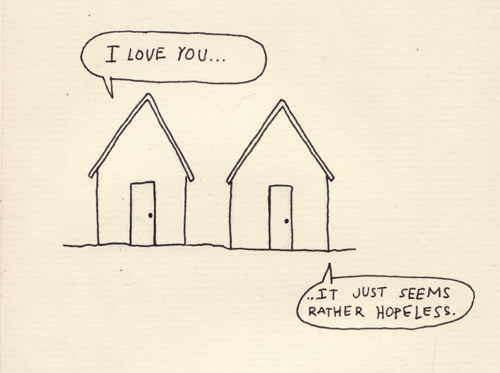 I LOVE YOU...
..IT JUST SEEMS
RATHER HOPELESS.